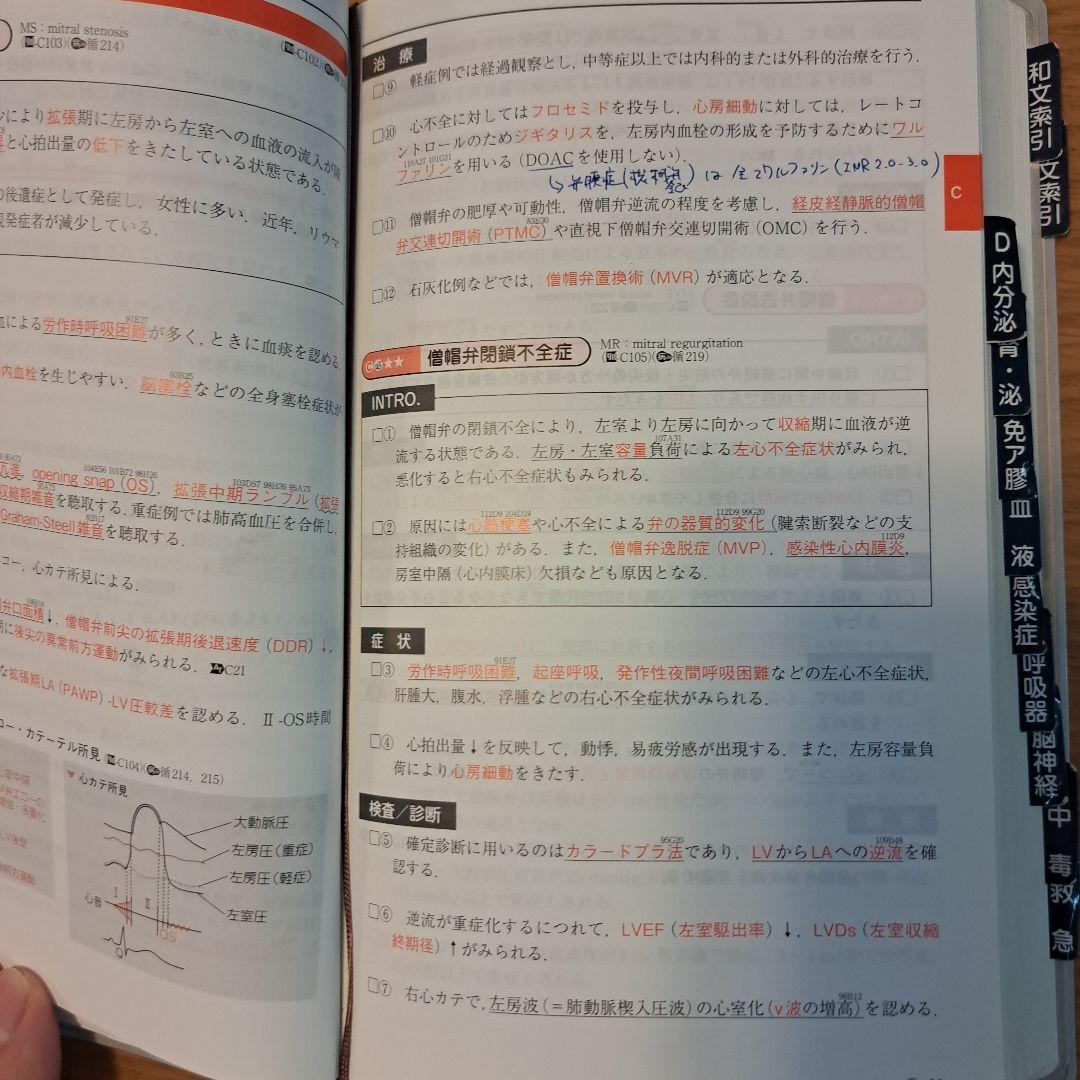 MS：mitral stenosis
C103)(循214)
C102)(
により拡張期に左房から左室への血液の流入が
と心拍出量の低下をきたしている状態である．
の後遺症として発症し，女性に多い．近年，リウマ
発症者が減少している．
91E27
血による労作時呼吸困難が多く，ときに血痰を認める．
93B25
内血栓を生じやすい．脳塞栓などの全身塞栓症状が
104E56 101B72 98H26
103D57 98H26 95A73
亢進，opening snap (OS)，拡張中期ランブル (拡張
収縮期雑音を聴取する．重症例では肺高血圧を合併し，
Graham-Steell雑音を聴取する．
コー，心カテ所見による．
弁口面積↓，僧帽弁前尖の拡張期後退速度 (DDR) ↓，
期に後尖の異常前方運動がみられる． C21
な拡張期LA (PAWP) -LV圧較差を認める．Ⅱ-OS時間
コー・カテーテル所見 (C104)(循214，215)
心室中隔
▼心カテ所見
大動脈圧
左房圧(重症)
左房圧(軽症)
左室圧
心音
Ⅰ
Ⅱ
OS
治 療
□⑨ 軽症例では経過観察とし，中等症以上では内科的または外科的治療を行う．
□⑩ 心不全に対してはフロセミドを投与し，心房細動に対しては，レートコ
ントロールのためジギタリスを，左房内血栓の形成を予防するためにワル
110A27 101G21
ファリンを用いる (DOACを使用しない)．
は全てワルファリン (INR 2.0-3.0)
□⑪ 僧帽弁の肥厚や可動性，僧帽弁逆流の程度を考慮し，経皮経静脈的僧帽
83E30
弁交連切開術 (PTMC) や直視下僧帽弁交連切開術 (OMC) を行う．
□⑫ 石灰化例などでは，僧帽弁置換術 (MVR) が適応となる．
C ★★ 僧帽弁閉鎖不全症
MR：mitral regurgitation
(C105)(循219)
INTRO.
□① 僧帽弁の閉鎖不全により，左室より左房に向かって収縮期に血液が逆
107A31
流する状態である．左房・左室容量負荷による左心不全症状がみられ，
悪化すると右心不全症状もみられる．
112D9 104D24
112D9 99G20
□② 原因には心筋梗塞や心不全による弁の器質的変化 (腱索断裂などの支
112D9
持組織の変化) がある．また，僧帽弁逸脱症 (MVP)，感染性心内膜炎，
房室中隔 (心内膜床) 欠損なども原因となる．
症 状
91E27
□③ 労作時呼吸困難，起座呼吸，発作性夜間呼吸困難などの左心不全症状，
肝腫大，腹水，浮腫などの右心不全症状がみられる．
□④ 心拍出量↓を反映して，動悸，易疲労感が出現する．また，左房容量負
荷により心房細動をきたす．
検査／診断
95G20
109B48
□⑤ 確定診断に用いるのはカラードプラ法であり，LVからLAへの逆流を確
認する．
□⑥ 逆流が重症化するにつれて，LVEF (左室駆出率) ↓，LVDs (左室収縮
終期径) ↑がみられる．
98B12
□⑦ 右心カテで，左房波 (＝肺動脈楔入圧波) の心室化 (v波の増高) を認める．
C
和文索引
文索引
D 内分泌
腎・泌
免ア膠
血 液
感染症
呼吸器
脳神経
中 毒
救 急